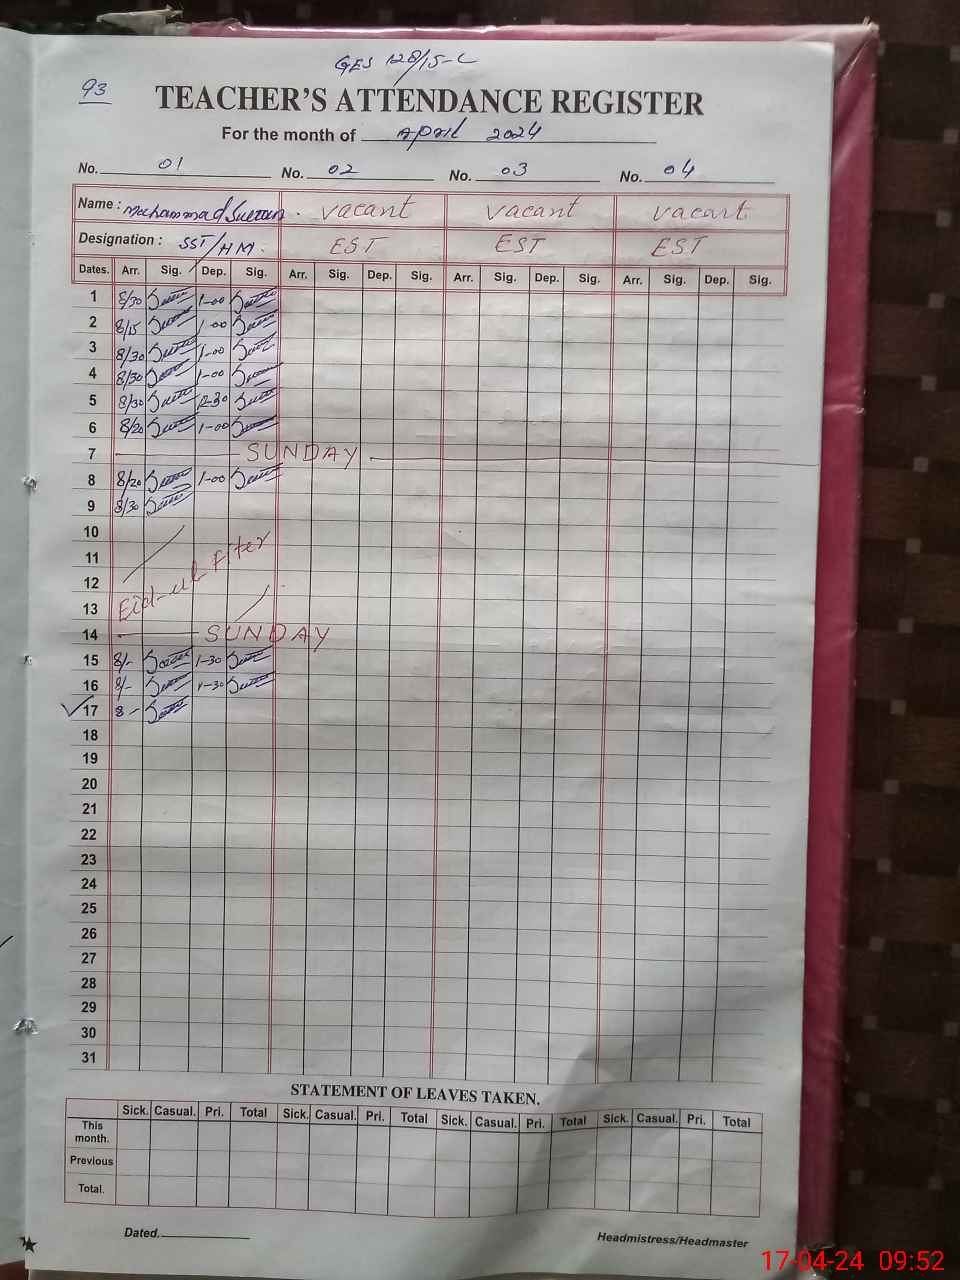 GES 128/15-L
93
TEACHER'S ATTENDANCE REGISTER
For the month of April 2024
No. 01 No. 02 No. 03 No. 04
Name : Muhammad vacant vacant vacant
Designation : SST/HM. EST EST EST
Dates. Arr. Sig. Dep. Sig. Arr. Sig. Dep. Sig. Arr. Sig. Dep. Sig. Arr. Sig. Dep. Sig.
1 8/30 1-00
2 8/15 1-00
3 8/30 1-00
4 8/30 1-00
5 8/30 12-30
6 8/20 1-00
7 SUNDAY
8 8/20 1-00
9 8/30
10
11
12
13 Eid-ul Fiter
14 SUNDAY
15 8/- 1-30
16 8/- 1-30
17 8-
18
19
20
21
22
23
24
25
26
27
28
29
30
31
STATEMENT OF LEAVES TAKEN.
Sick. Casual. Pri. Total Sick. Casual. Pri. Total Sick. Casual. Pri. Total Sick. Casual. Pri. Total
This month.
Previous
Total.
Dated. Headmistress/Headmaster
17-04-24 09:52